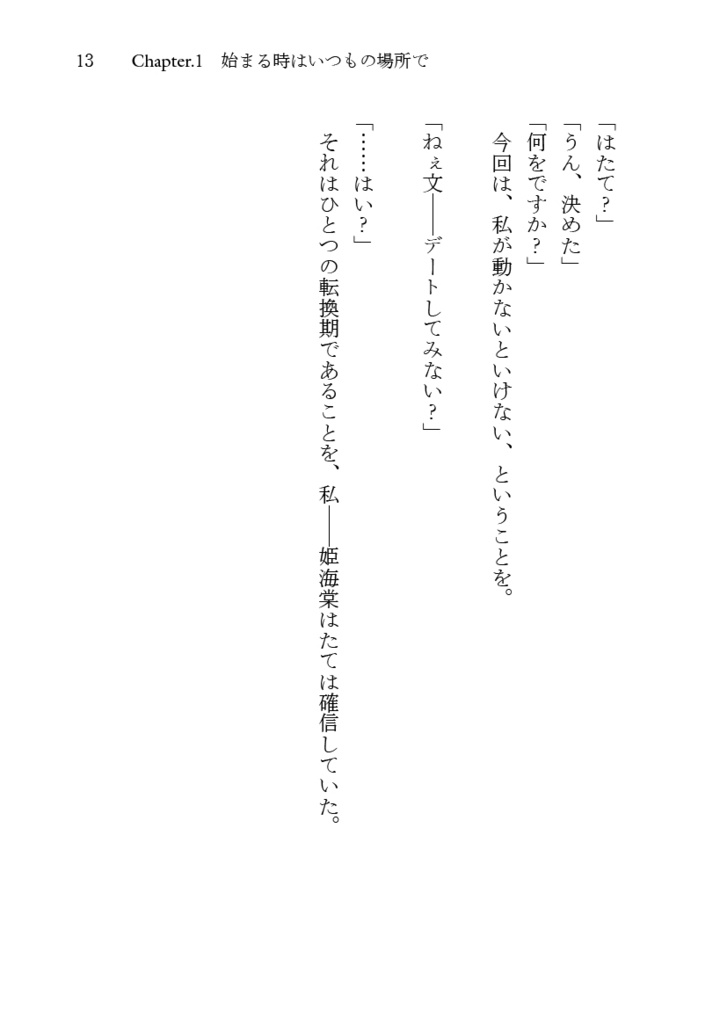 13　Chapter.1　始まる時はいつもの場所で
「はたて？」
「うん、決めた」
「何をですか？」
　今回は、私が動かないといけない、ということを。
「ねぇ文――デートしてみない？」
「……はい？」
　それはひとつの転換期であることを、私――姫海棠はたては確信していた。